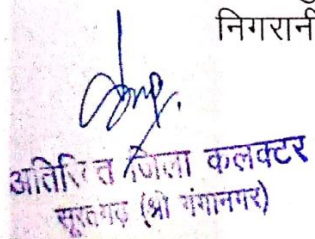 निगरानी
अतिरिक्त जिला कलक्टर
सूरतगढ़ (श्री गंगानगर)